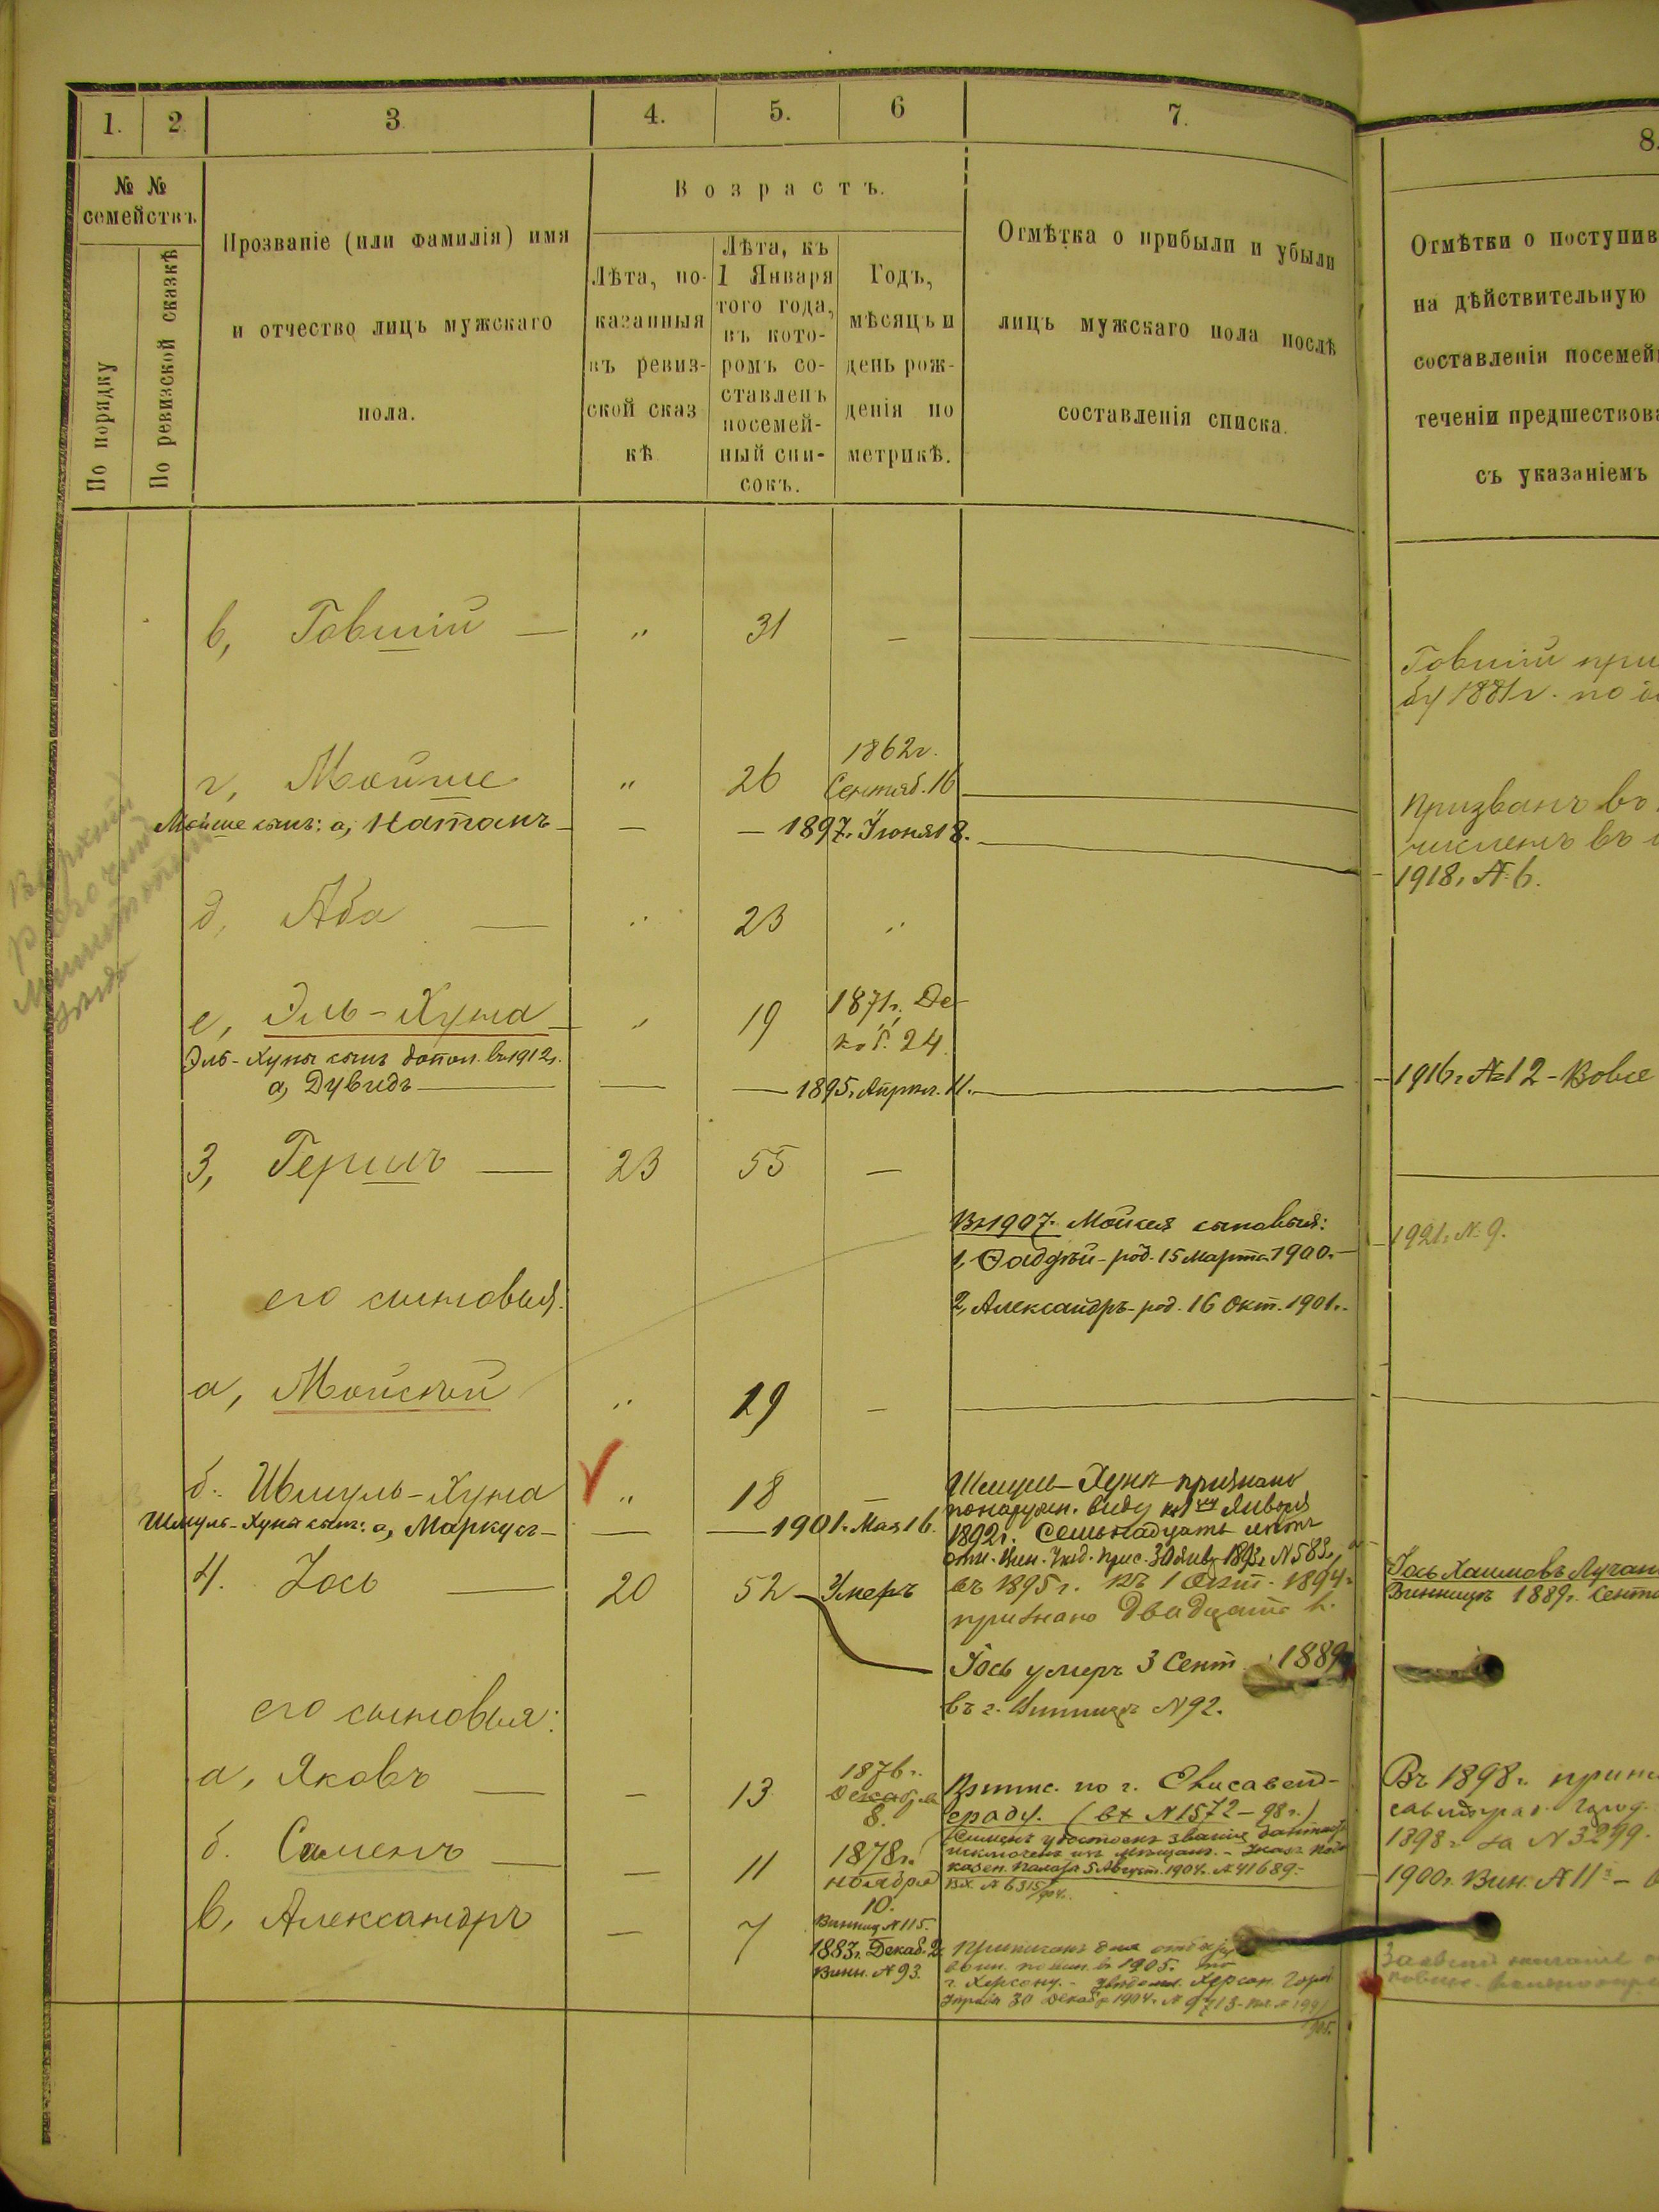 1. 2. 3 4. 5. 6 7. 8.
№ №
семействъ
По порядку
По ревизской сказкѣ
Прозваніе (или фамилія) имя
и отчество лицъ мужскаго
пола.
Возрастъ.
Лѣта, по-
казанныя
въ ревиз-
ской сказ
кѣ
Лѣта, къ
1 Января
того года,
въ кото-
ромъ со-
ставленъ
посемей-
ный спи-
сокъ.
Годъ,
мѣсяцъ и
день рож-
денія по
метрикѣ.
Отмѣтка о прибыли и убыли
лицъ мужскаго пола послѣ
составленія списка.
Отмѣтки о поступив
на дѣйствительную
составленія посемей
теченіи предшествова
съ указаніемъ
в, Говшій — " 31 —
Говшій при
1881г. по
г, Мойше " 26
1862г.
Сентяб. 16
Призванъ во
численъ въ
Мойше сынъ: а, Натанъ — — — 1897г. Іюня 18.
1918г. № 6.
д, Аба — " 23 "
е, Эль-Хуна — " 19
1871г. Де-
каб. 24
Эль-Хуны сынъ допол. въ 1912г.
а, Дувидъ — — — 1895г. Апрѣл. 11.
1916г. № 12 - Вовсе
3, Гершъ — 23 55 —
Въ 1907г. Мойсея сыновья:
1, Фаддѣй - род. 15 Марта 1900г.
1921г. № 9.
2, Александръ - род. 16 Окт. 1901г.
его сыновья:
а, Мойсѣй " 19 —
б. Шмуль-Хуна " 18 —
Шмуль-Хуна признанъ
по наруж. виду къ 1му Января
1892г. Семьнадцать лѣтъ
Шмуль-Хуны сынъ: а, Маркусъ — — — 1901г. Мая 16.
въ 1895г. къ 1 Окт. 1894г.
признано двадцать
4. Іось — 20 52 — Умеръ
Іось Хаимовъ
Винницѣ 1889г. Сент
Іось умеръ 3 Сент. 1889
въ г. Винницѣ № 92.
его сыновья:
а, Яковъ — — 13
1876г.
Декабря
8.
Припис. по г. Елисавет-
граду. (вх № 1572 — 98г.)
Въ 1898г. припис
1898г. за № 3299.
б. Семенъ — — 11
1878г.
ноября
10.
Семенъ удостоенъ званія дантиста
исключенъ изъ мѣщанъ. - Указъ Под.
казен. палаты 5 Август. 1904г. № 41689.
Вх. № 6315/904г.
1900г. Вин. № 11
в, Александръ — 7
Винниц № 115.
1883г. Декаб. 2
Винн. № 93.
Приписанъ для отбы
воин. повин. въ 1905г. по
г. Херсону. - Херсон. Город.
30 Декабр 1904г. № 9713